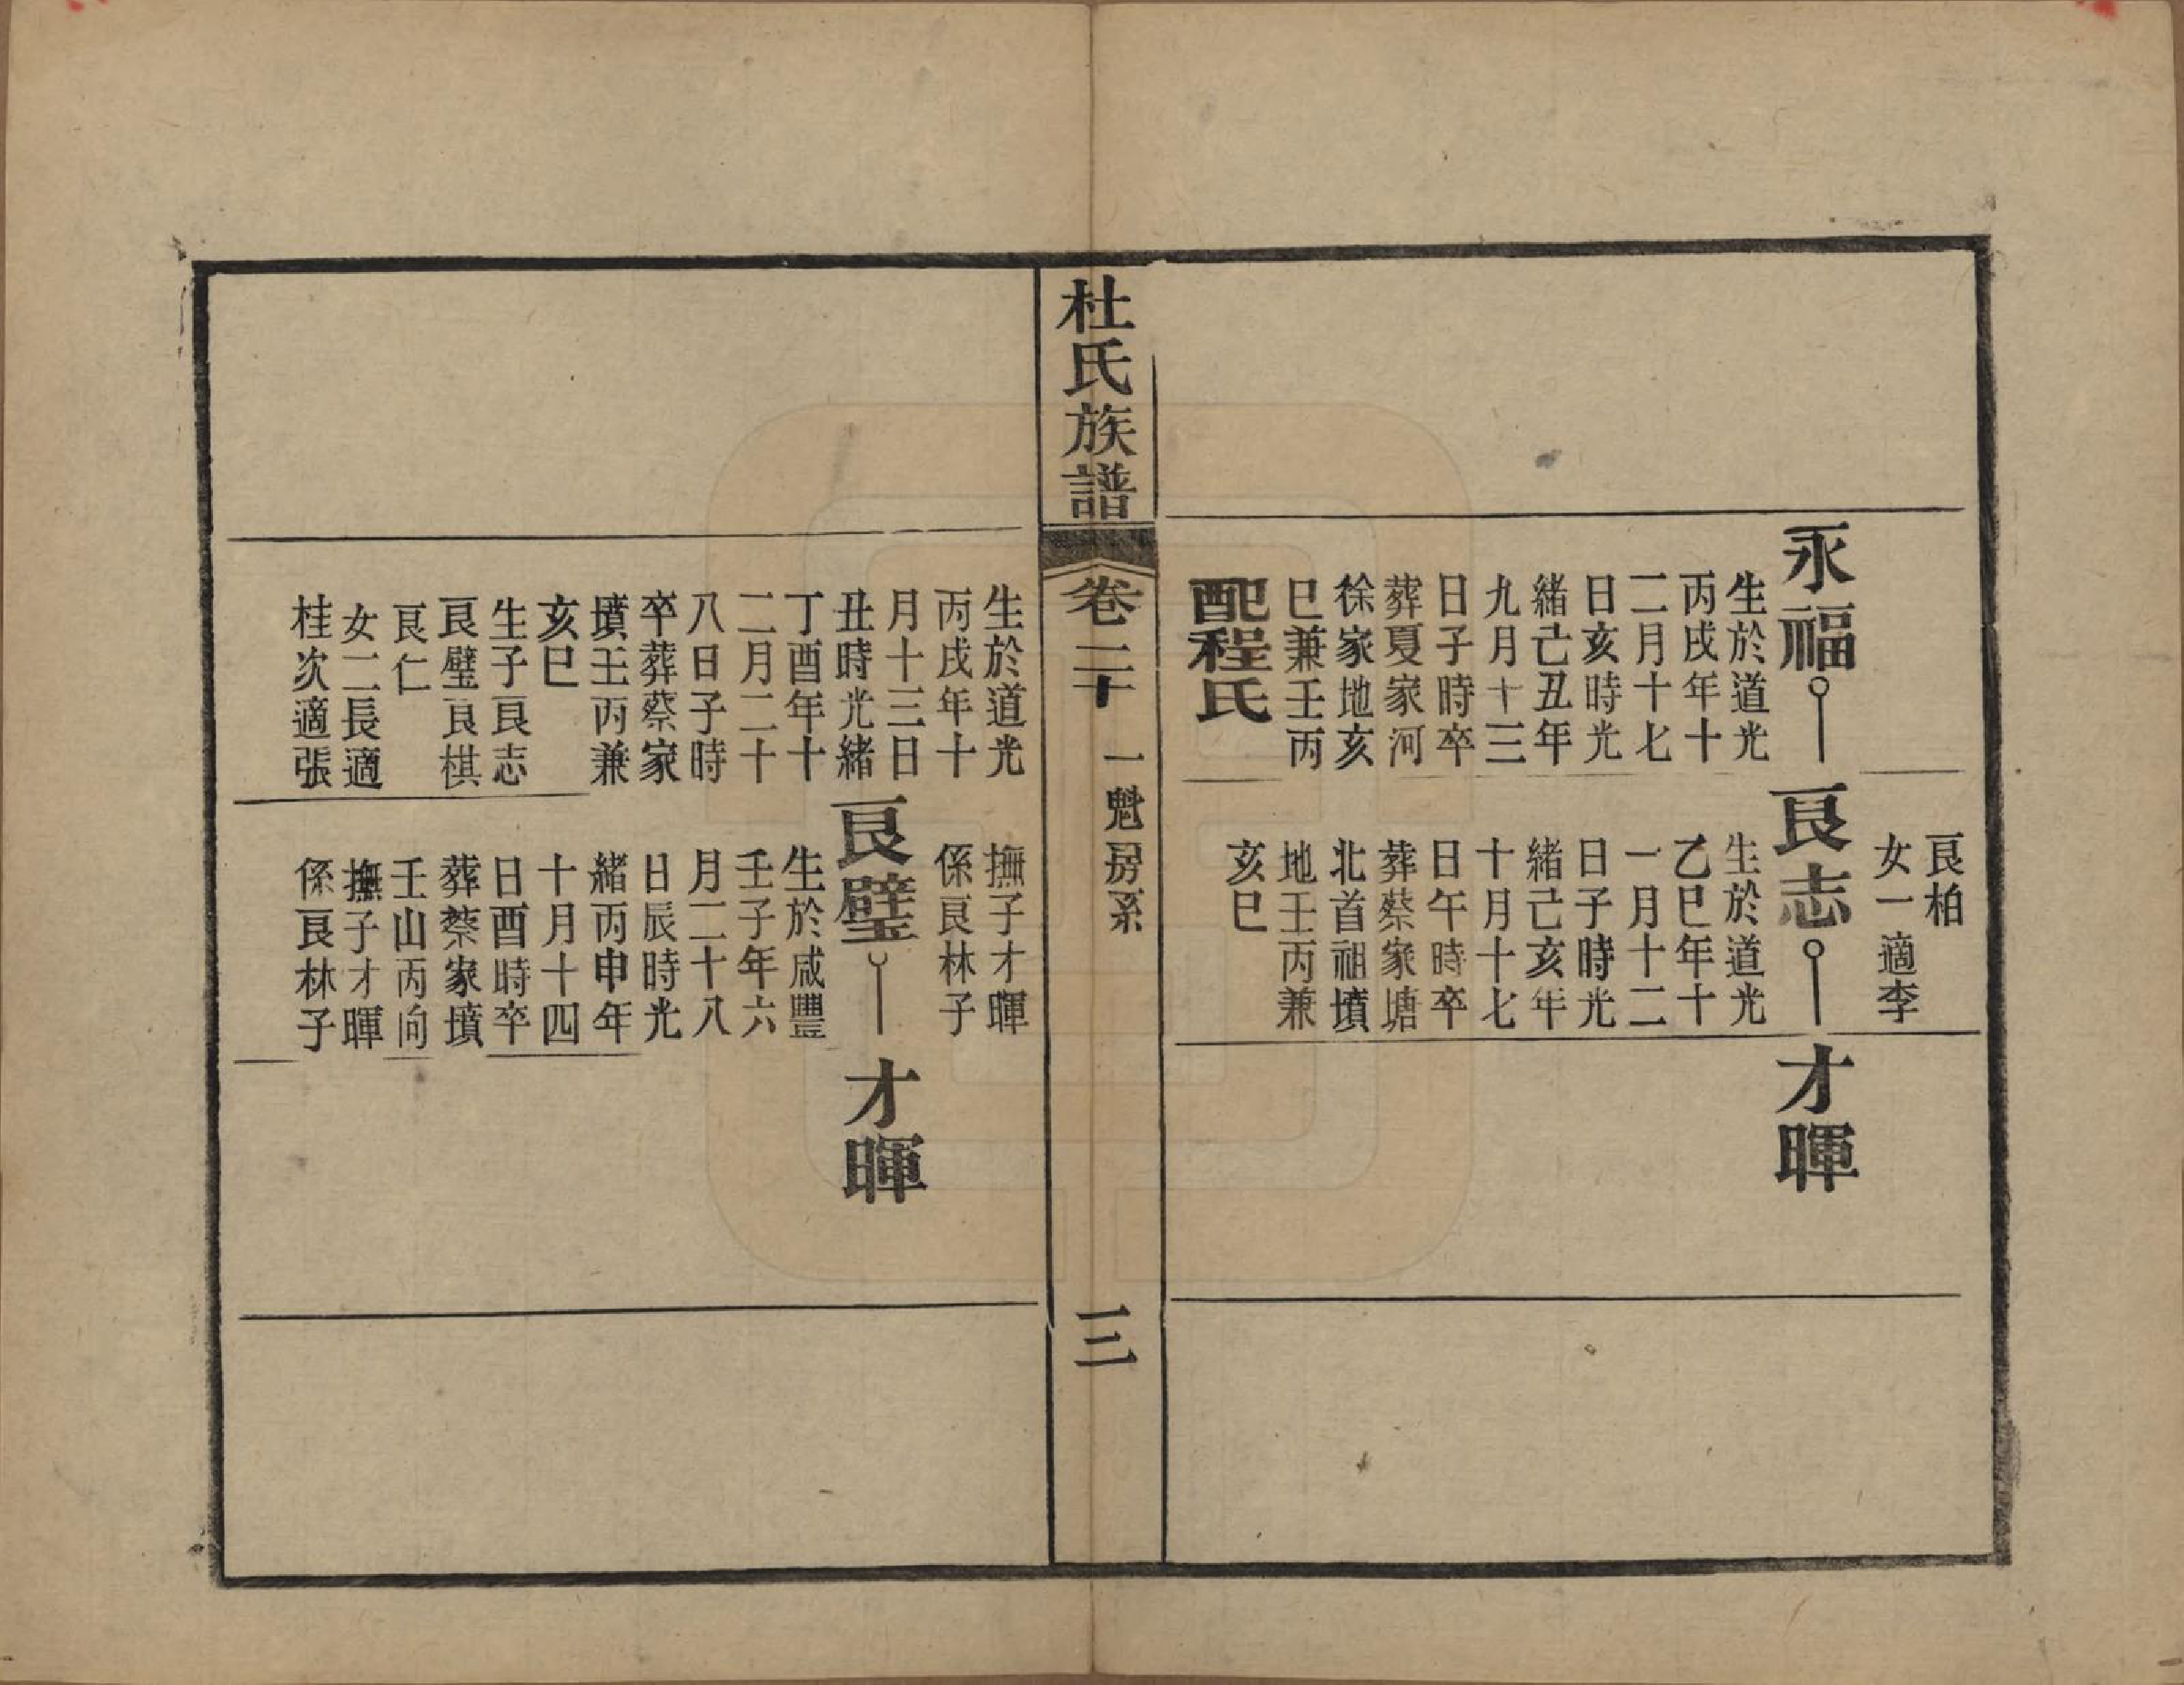 艮柏
女一適李
永福
生於道光
丙戌年十
二月十七
日亥時光
緒己丑年
九月十三
日子時卒
葬夏家河
徐家地亥
巳兼壬丙
配程氏
艮志
生於道光
乙巳年十
一月十二
日子時光
緒己亥年
十月十七
日午時卒
葬蔡家塘
北首祖墳
地壬丙兼
亥巳
才暉
杜氏族譜
卷二十
一魁房系
三
生於道光
丙戌年十
月十三日
丑時光緒
丁酉年十
二月二十
八日子時
卒葬蔡家
墳壬丙兼
亥巳
生子艮志
艮璧艮棋
艮仁
女二長適
桂次適張
撫子才暉
係艮林子
艮璧
生於咸豐
壬子年六
月二十八
日辰時光
緒丙申年
十月十四
日酉時卒
葬蔡家墳
壬山丙向
撫子才暉
係艮林子
才暉